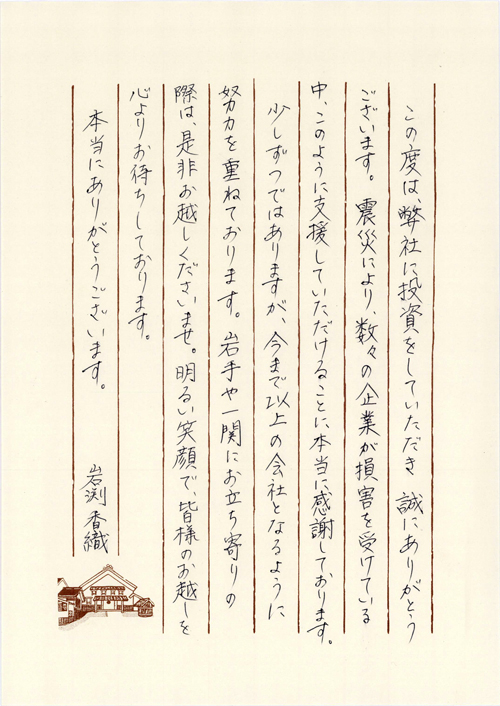 この度は、弊社に投資をしていただき 誠にありがとう
ございます。震災により、数々の企業が損害を受けている
中、このように支援していただけることに本当に感謝しております。
少しずつではありますが、今まで以上の会社となるように
努力を重ねております。岩手や一関にお立ち寄りの
際は、是非お越しくださいませ。明るい笑顔で、皆様のお越しを
心よりお待ちしております。
本当にありがとうございます。
岩渕 香織